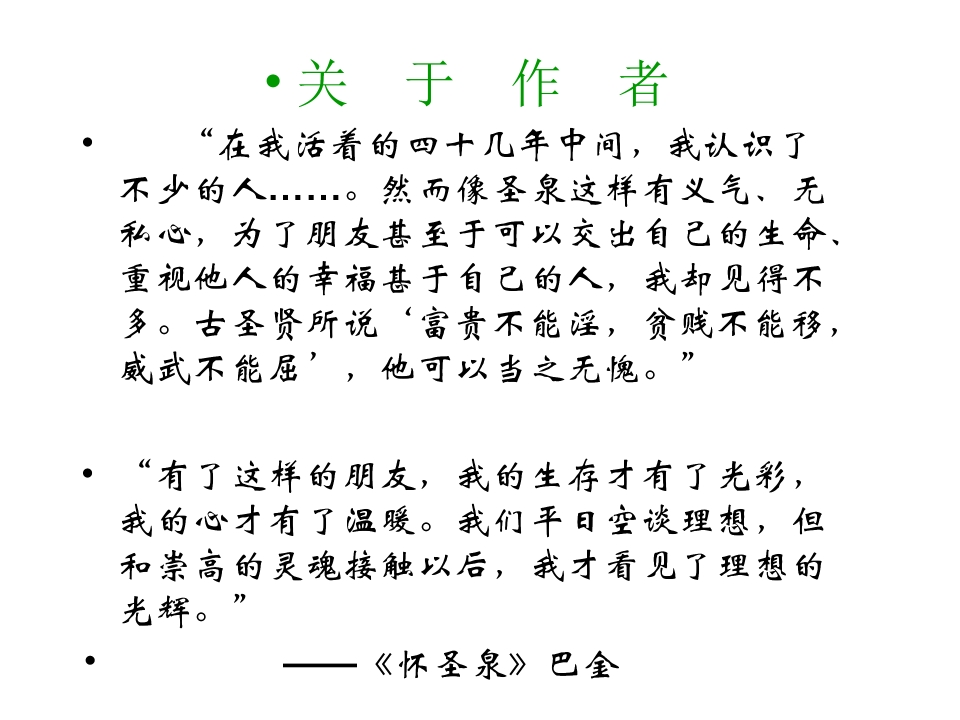 •关 于 作 者
• “在我活着的四十几年中间，我认识了
不少的人……。然而像圣泉这样有义气、无
私心，为了朋友甚至于可以交出自己的生命、
重视他人的幸福甚于自己的人，我却见得不
多。古圣贤所说‘富贵不能淫，贫贱不能移，
威武不能屈’，他可以当之无愧。”
• “有了这样的朋友，我的生存才有了光彩，
我的心才有了温暖。我们平日空谈理想，但
和崇高的灵魂接触以后，我才看见了理想的
光辉。”
• ——《怀圣泉》巴金